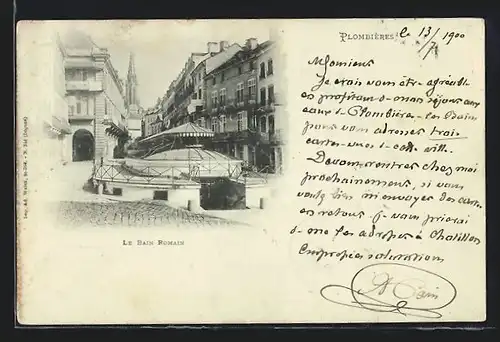 PLOMBIÈRES
le 13/7 1900
Monsieur
Je vais vous être agréable
en profitant de mon séjour aux
eaux de Plombières-les-bains
pour vous adresser trois
cartes-vues de cette ville.
Devant rentrer chez moi
prochainement, si vous
voulez bien m'envoyer des cartes
en retour je vous prierai
de me les adresser à Chatillon
Empressées salutations
LE BAIN ROMAIN